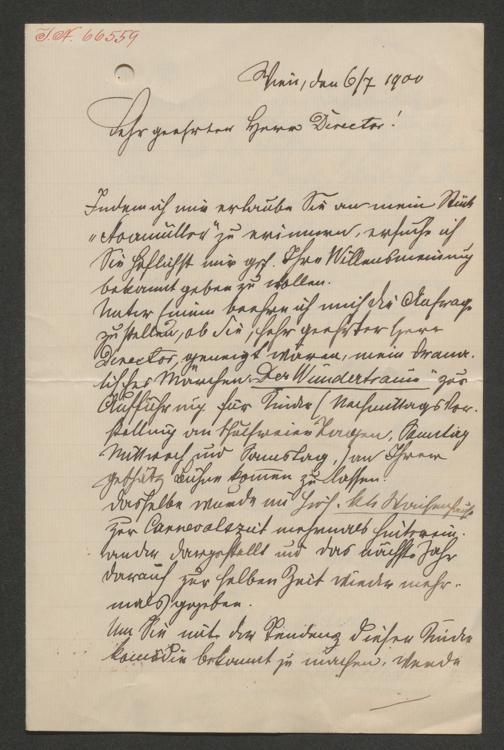 I.N. 66559
Wien, den 6/7 1900
Sehr geehrter Herr Director!
Indem ich mir erlaube Sie an mein Stück
zu erinnern, ersuche ich
Sie höflichst mir gfl. Ihre Willensmeinung
bekannt geben zu wollen.
Unter Einem beehre ich mich die Anfrage
zu stellen, ob Sie, sehr geehrter Herr
Director, geneigt wären, mein drama-
tisches Märchen „Der Wundertraum" zur
Aufführung für Kinder (Nachmittags Vor-
stellung an schulfreien Tagen, Sonntag
Mittwoch und Samstag,) an Ihrer
geschätz Bühne kommen zu lassen.
Dasselbe wurde im Waisenhause
zur Carnevalszeit mehrmals hinterein-
ander dargestellt und das nächste Jahr
darauf zur selben Zeit wieder mehr-
mals gegeben.
Um Sie mit der Tendenz dieser Kinder
komödie bekannt zu machen, werde